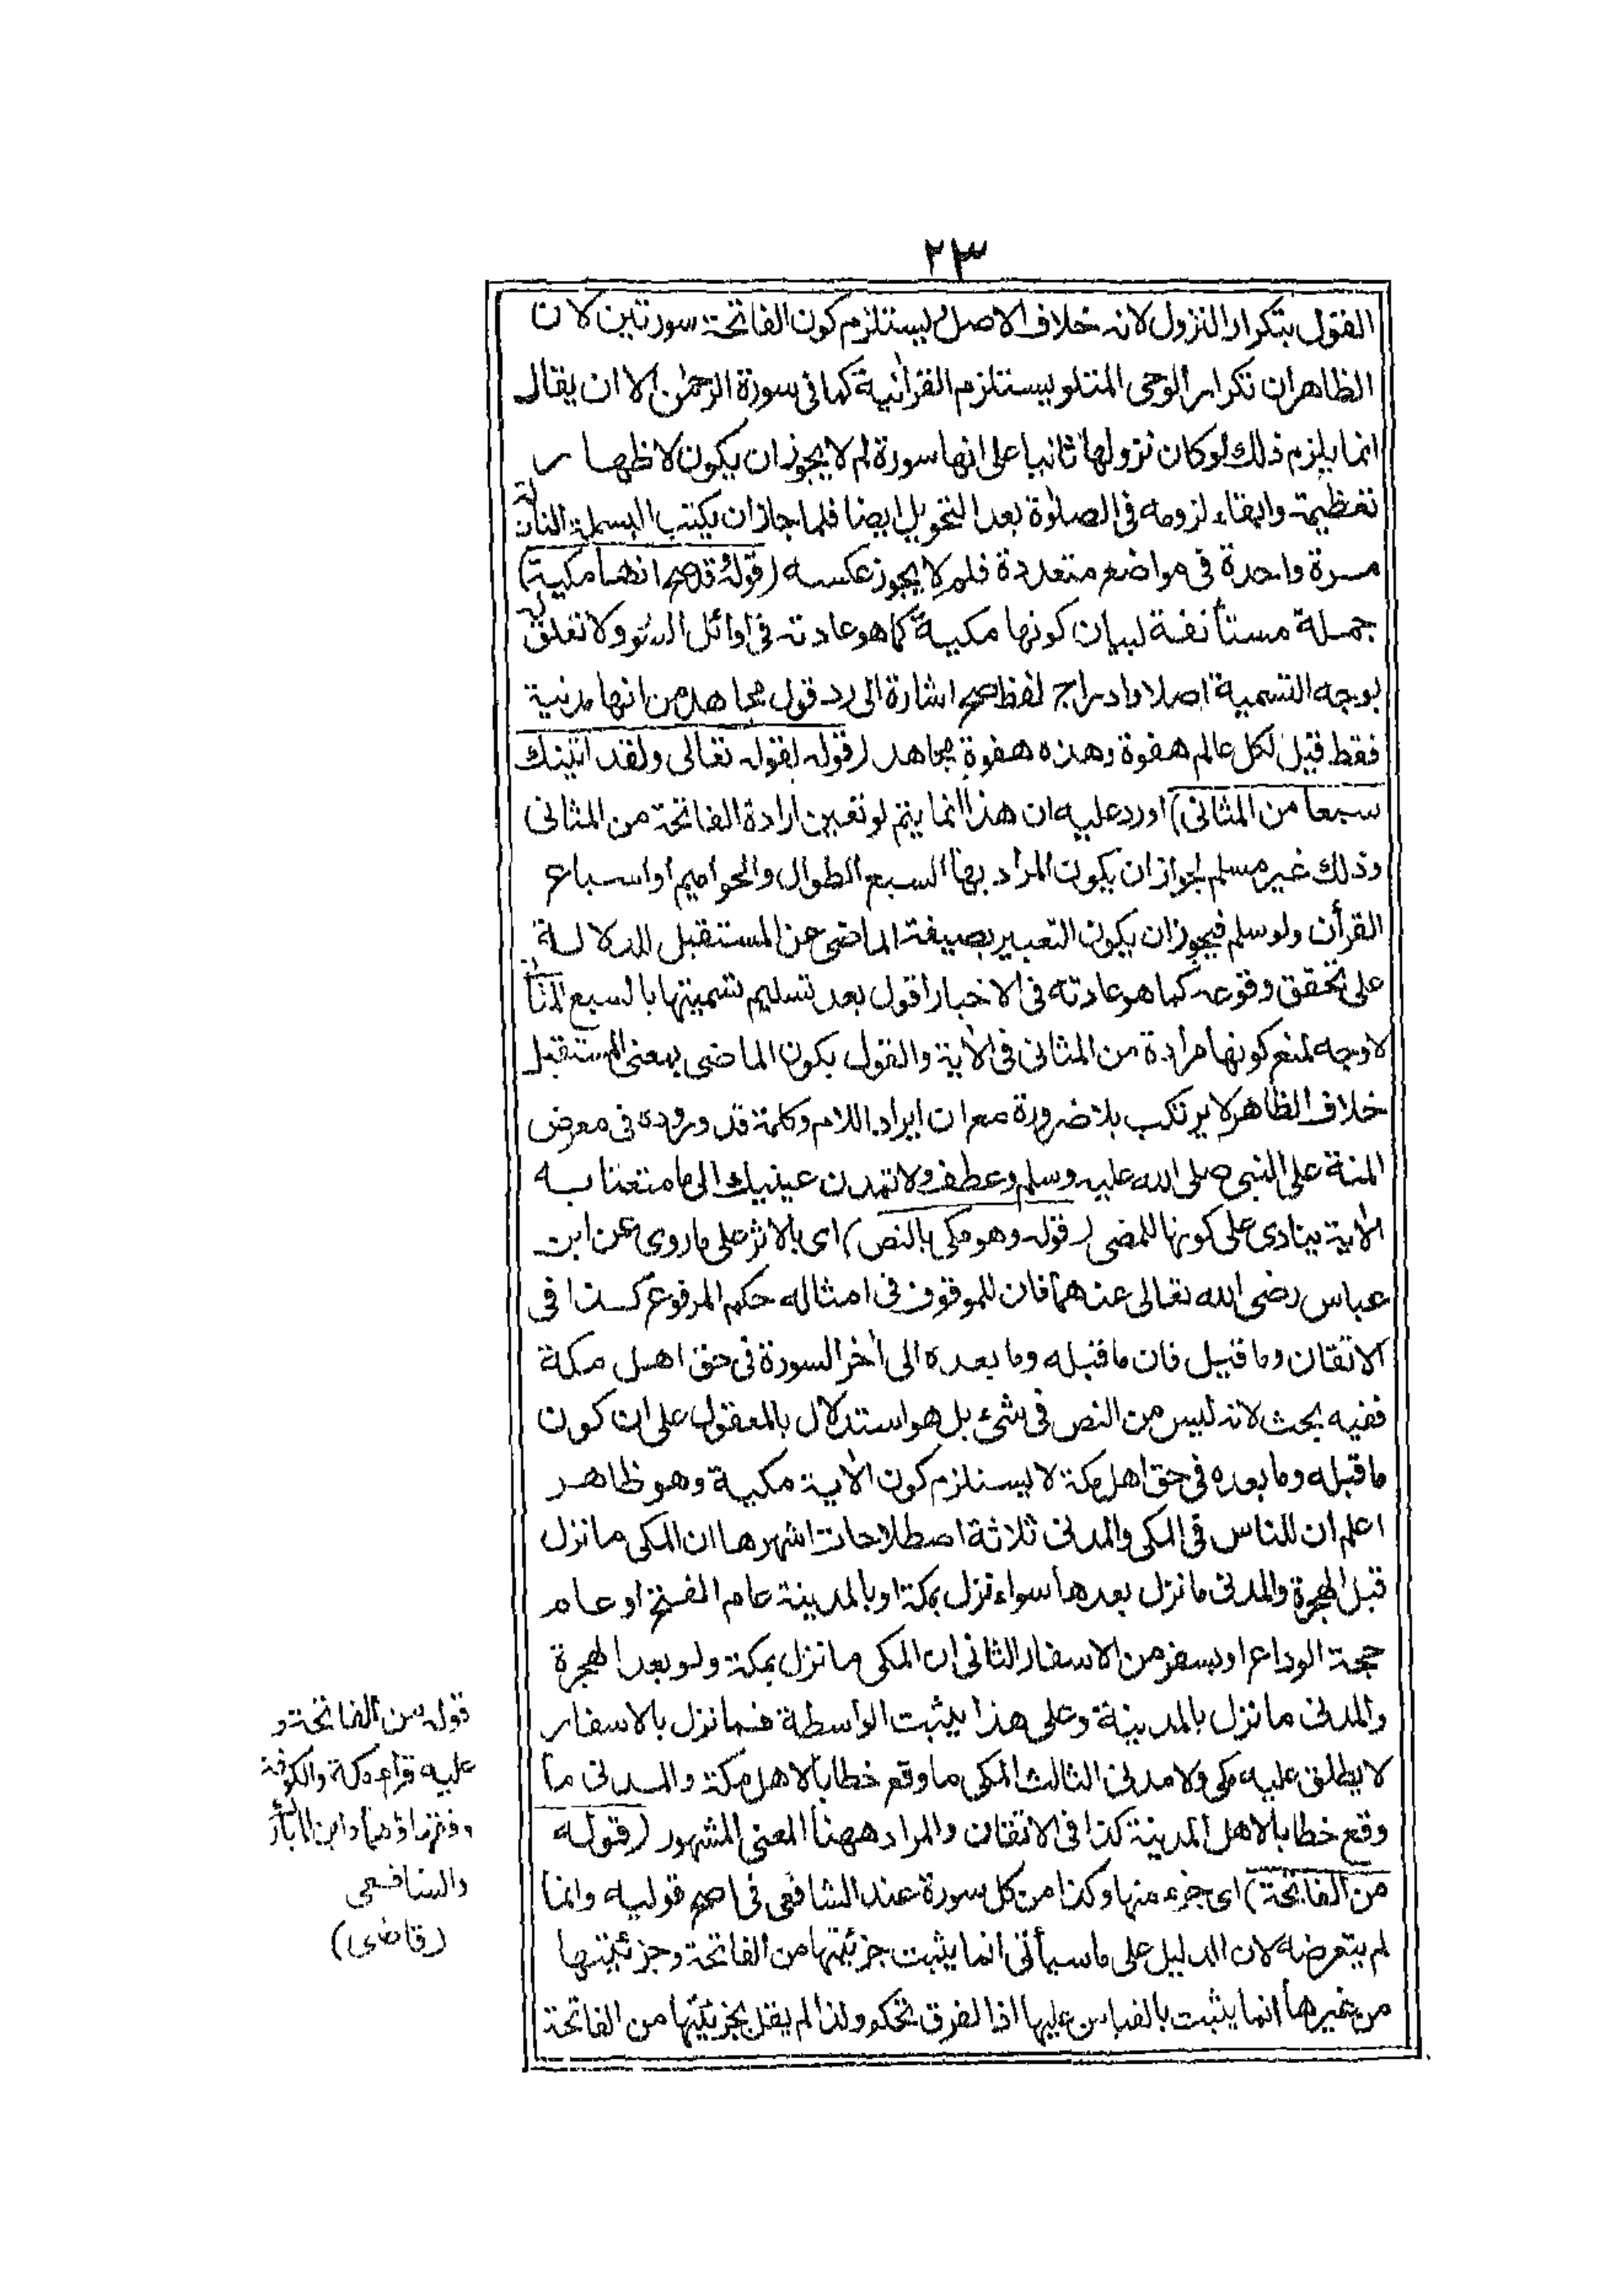 ٢٣
القول بتكرار النزول لانه خلاف الاصل يستلزم كون الفاتحة سورتين لان
الظاهر ان تكرار الوحى المتلو يستلزم القرآنية كما فى سورة الرحمٰن الا ان يقال
انما يلزم ذلك لو كان نزولها ثانيا على انها سورة لم لا يجوز ان يكون لاظهار
تعظيمه وابقاء لزومه فى الصلوٰة بعد التحويل ايضا فلما جاز ان يكتب البسملة النازلة
مرة واحدة فى مواضع متعددة فلم لا يجوز عكسه (قوله وقد صح انها مكية)
جملة مستأنفة لبيان كونها مكية كما هو عادته فى اوائل السور ولا تعلق له
بوجه التسمية اصلا وادراج لفظ صح اشارة الى رد قول مجاهد من انها مدنية
فقط قيل لكل عالم هفوة وهذه هفوة مجاهد (قوله لقوله تعالى ولقد اتينك
سبعا من المثانى) اورد عليه ان هذا انما يتم لو تعين ارادة الفاتحة من المثانى
وذلك غير مسلم لجواز ان يكون المراد بها السبع الطوال والحواميم او اسباع
القرأن ولو سلم فيجوز ان يكون التعبير بصيغة الماضى عن المستقبل للدلالة
على تحقق وقوعه كما هو عادته فى الاخبار اقول بعد تسليم تسميتها بالسبع المثانى
لا وجه لمنع كونها مرادة من المثانى فى الآية والقول بكون الماضى بمعنى المستقبل
خلاف الظاهر لا يرتكب بلا ضرورة مع ان ايراد اللام وكلمة قد وروده فى معرض
المنة على النبى صلى الله عليه وسلم وعطف ولا تمدن عينيك الى ما متعنا به
الآية ينادى على كونها للمضى (قوله وهو مكى بالنص) اى بالاثر على ما روى عن ابن
عباس رضى الله تعالى عنهما فان للموقوف فى امثاله حكم المرفوع كذا فى
الاتقان وما قيل فان ما قبله وما بعده الى أخر السورة فى حق اهل مكة
ففيه بحث لانه ليس من النص فى شئ بل هو استدلال بالمعقول على ان كون
ما قبله وما بعده فى حق اهل مكة لا يستلزم كون الآية مكية وهو ظاهر
اعلم ان للناس فى المكى والمدنى ثلاثة اصطلاحات اشهرها ان المكى ما نزل
قبل الهجرة والمدنى ما نزل بعدها سواء نزل بمكة او بالمدينة عام الفتح او عام
حجة الوداع او بسفر من الاسفار الثانى ان المكى ما نزل بمكة ولو بعد الهجرة
والمدنى ما نزل بالمدينة وعلى هذا يثبت الواسطة فما نزل بالاسفار
لا يطلق عليه مكى ولا مدنى الثالث المكى ما وقع خطابا لاهل مكة والمدنى ما
وقع خطابا لاهل المدينة كذا فى الاتقان والمراد ههنا المعنى المشهور (قوله
من الفاتحة) اى جزء منها وكذا من كل سورة عند الشافعى فى اصح قوليه وانما
لم يتعرضه لان الدليل على ما سيأتى انما يثبت جزئيتها من الفاتحة وجزئيتها
من غيرها انما يثبت بالقياس عليها اذ الفرق تحكم ولذا لم يقل بجزئيتها من الفاتحة
قوله من الفاتحة و
عليه قراء مكة والكوفة
وفقهاؤهما وابن المبارك
والشافعى
(قاضى)